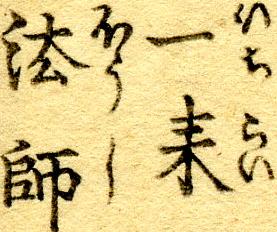 一来
いちらい
法師
ほうし